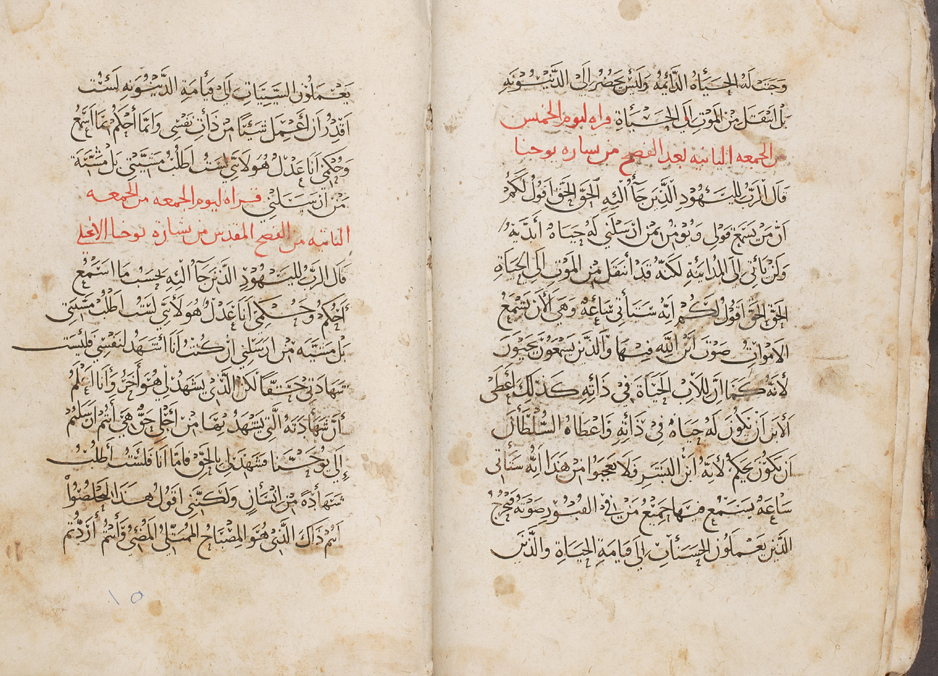 وجبت له الحياة الدائمه وليس يحضر الى الدينونه
بل انتقل من الموت الى الحياة قراه ليوم الخميس
من الجمعه الثانيه بعد الفصح من بشاره يوحنا
قال الرب لليهود الذين جاا اليه الحق الحق اقول لكم
ان من يسمع قولى ويومن بمن ارسلنى له حياة ابدية
ولن ياتى الى المداينه لكنه قد انتقل من الموت الى الحياة
الحق الحق اقول لكم انه ستاتى ساعة وهى الان تسمع
الاموات صوت ابن الله فيها والذين يسمعون يحيون
لانه كما ان للاب الحياة فى ذاته كذلك اعطى
الابن ان تكون له حياه فى ذاته واعطاه السلطان
ان يكون يحكم لانه ابن البشر فلا تعجبوا من هذا انه ستاتى
ساعه يستمع فيها جميع من فى القبور صوته فيخرج
الذين يعملون الحسنات الى قيامة الحياة والذين
يعملون السييات الى قيامة الدينونه لست
اقدر ان اعمل شيئا من ذات نفسى وانما احكم بما اسمع
وحكمى انا عدل هو لانى لست اطلب مشيتى بل مشية
من ارسلنى قراه ليوم الجمعه من الجمعه
الثانيه من الفصح المقدس من بشارة يوحنا الانجلى
قال الرب لليهود الذين جاا اليه بحسب ما استمع
احكم وحكمى انا عدل هو لانى لست اطلب مشيتى
بل مشيه من ارسلنى ان كنت انا اشهد لنفسى فليست
شهادتى حقا لان الذى يشهد لى هو اخر وانا اعلم
ان شهادته التى يشهد بها من اجلى حق هى انتم ارسلتم
الى يوحنا فشهد لى بالحق فاما انا فلست اطلب
شهادة من انسان ولكننى اقول هذا لتخلصوا
انتم ذاك الذى هو المصباح الممتلى المضى وانتم اردتم
١٥